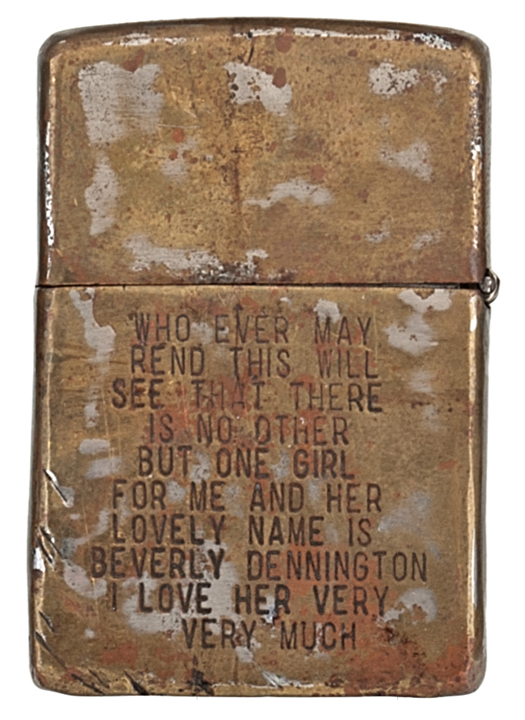 WHO EVER MAY
REND THIS WILL
SEE THAT THERE
IS NO OTHER
BUT ONE GIRL
FOR ME AND HER
LOVELY NAME IS
BEVERLY DENNINGTON
I LOVE HER VERY
VERY MUCH